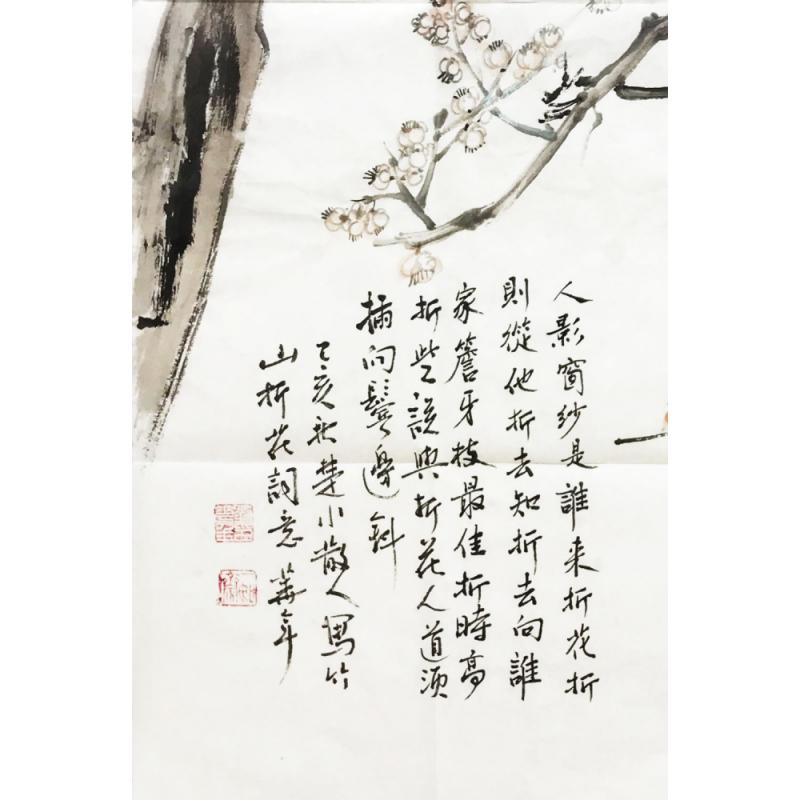 人影窗紗是誰来折花折
則從他折去知折去向誰
家簷牙枝最佳折時高
折些說與折花人道須
插向鬢邊斜
己亥秋楚小散人寫竹
山折花詞意 華年